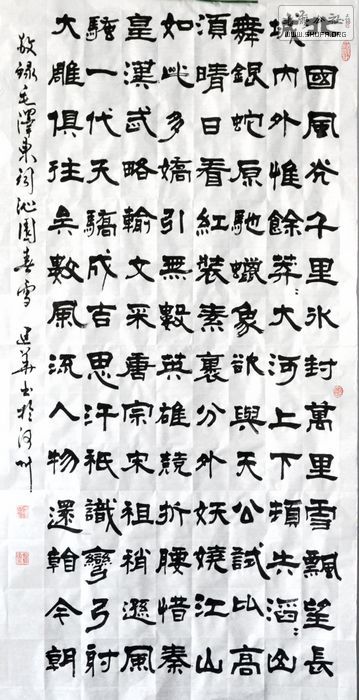 北國風光千里冰封萬里雪飄望長
城內外惟餘莽〻大河上下頓失滔〻山
舞銀蛇原馳蠟象欲與天公試比高
須晴日看紅裝素裹分外妖嬈江山
如此多嬌引無數英雄競折腰惜秦
皇漢武略輸文采唐宗宋祖稍遜風
騷一代天驕成吉思汗祇識彎弓射
大雕俱往矣數風流人物還看今朝
敬録毛澤東詞沁園春雪 建華书於
WWW.SHUFA.ORG